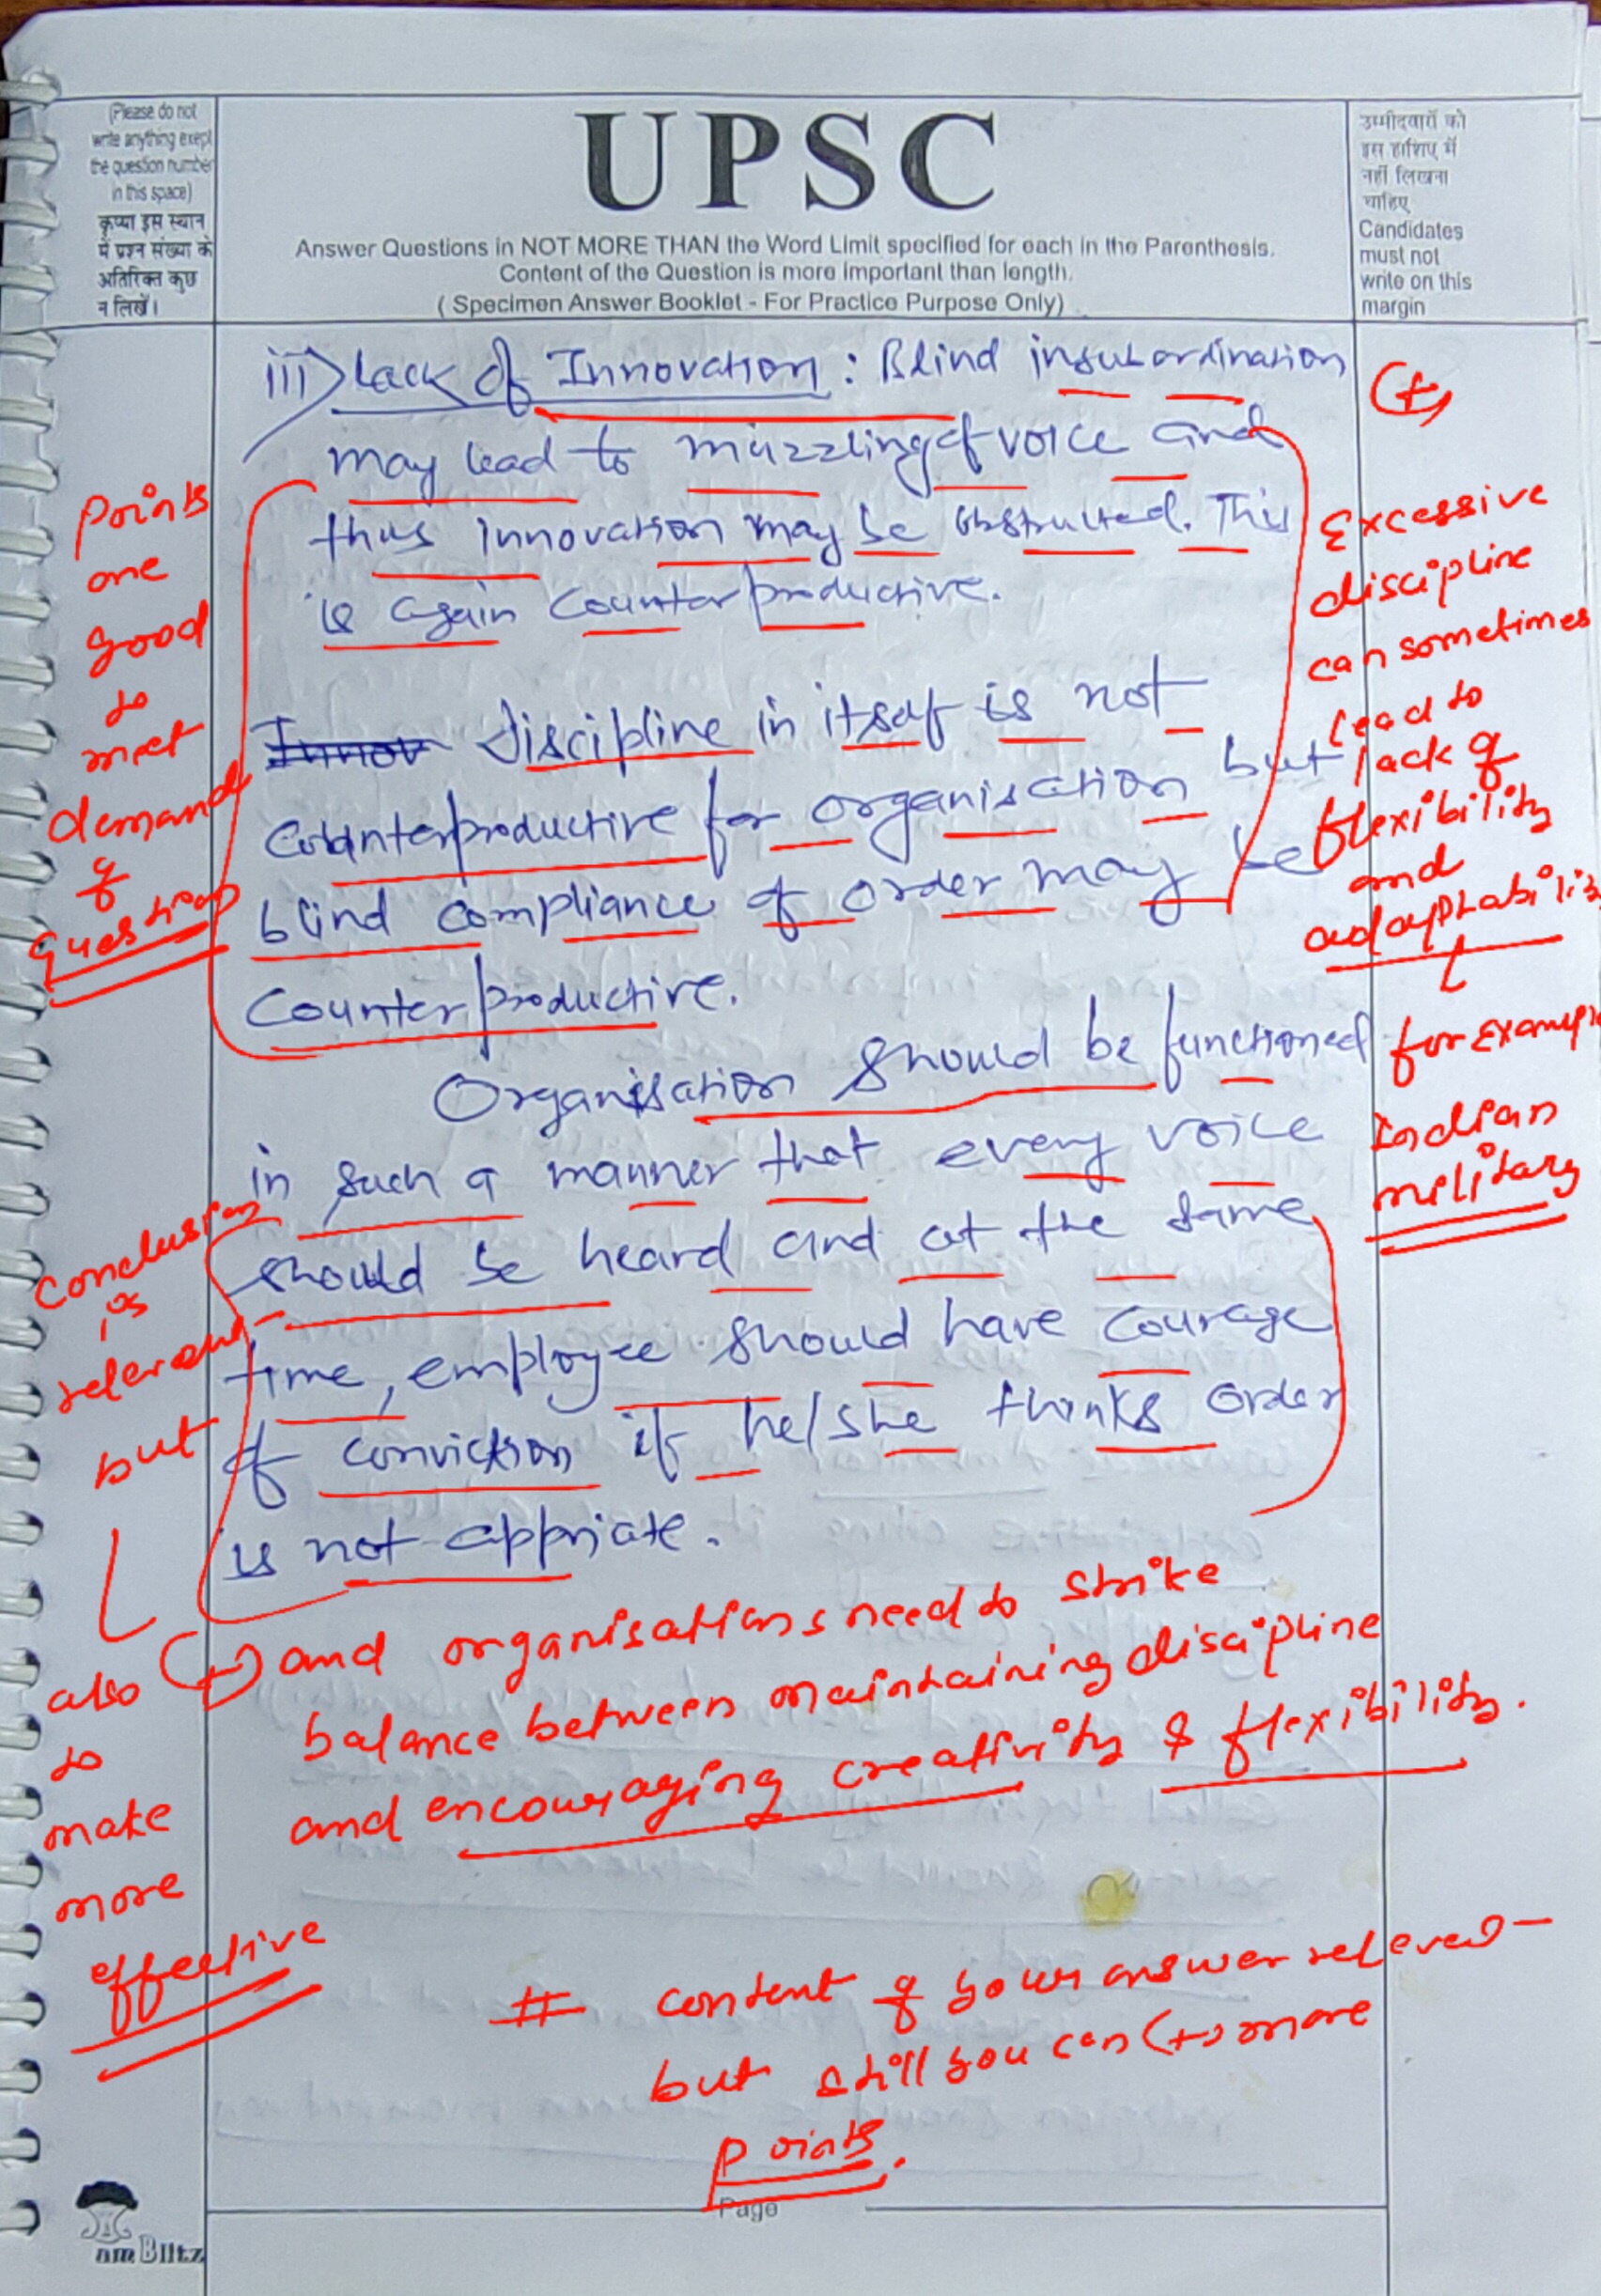 (Please do not
write anything exept
the question number
in this space)
कृप्या इस स्थान
में प्रश्न संख्या के
अतिरिक्त कुछ
न लिखें।
UPSC
Answer Questions in NOT MORE THAN the Word Limit specified for each in the Parenthesis.
Content of the Question is more important than length.
( Specimen Answer Booklet - For Practice Purpose Only)
उम्मीदवारों को
इस हाशिए में
नहीं लिखना
चाहिए
Candidates
must not
write on this
margin
iii) Lack of Innovation : Blind insubordination
may lead to muzzling of voice and
thus innovation may be obstructed. This
is again counterproductive.
Innov Discipline in itself is not
counterproductive for organisation but
blind compliance of order may be
counterproductive.
Organisation should be functioned
in such a manner that every voice
should be heard and at the same
time, employee should have courage
of conviction if he/she thinks order
is not appriate.
Points
are
good
to
meet
demand
of
question
(+)
Excessive
discipline
can sometimes
lead to
lack of
flexibility
and
adaptability
for example
Indian
military
conclusion
is
relevant
but
also
to
make
more
effective
(+) and organisations need to strike
balance between maintaining discipline
and encouraging creativity & flexibility.
# content of your answer relevent
but still you can (+) more
points.
Page
am Blitz